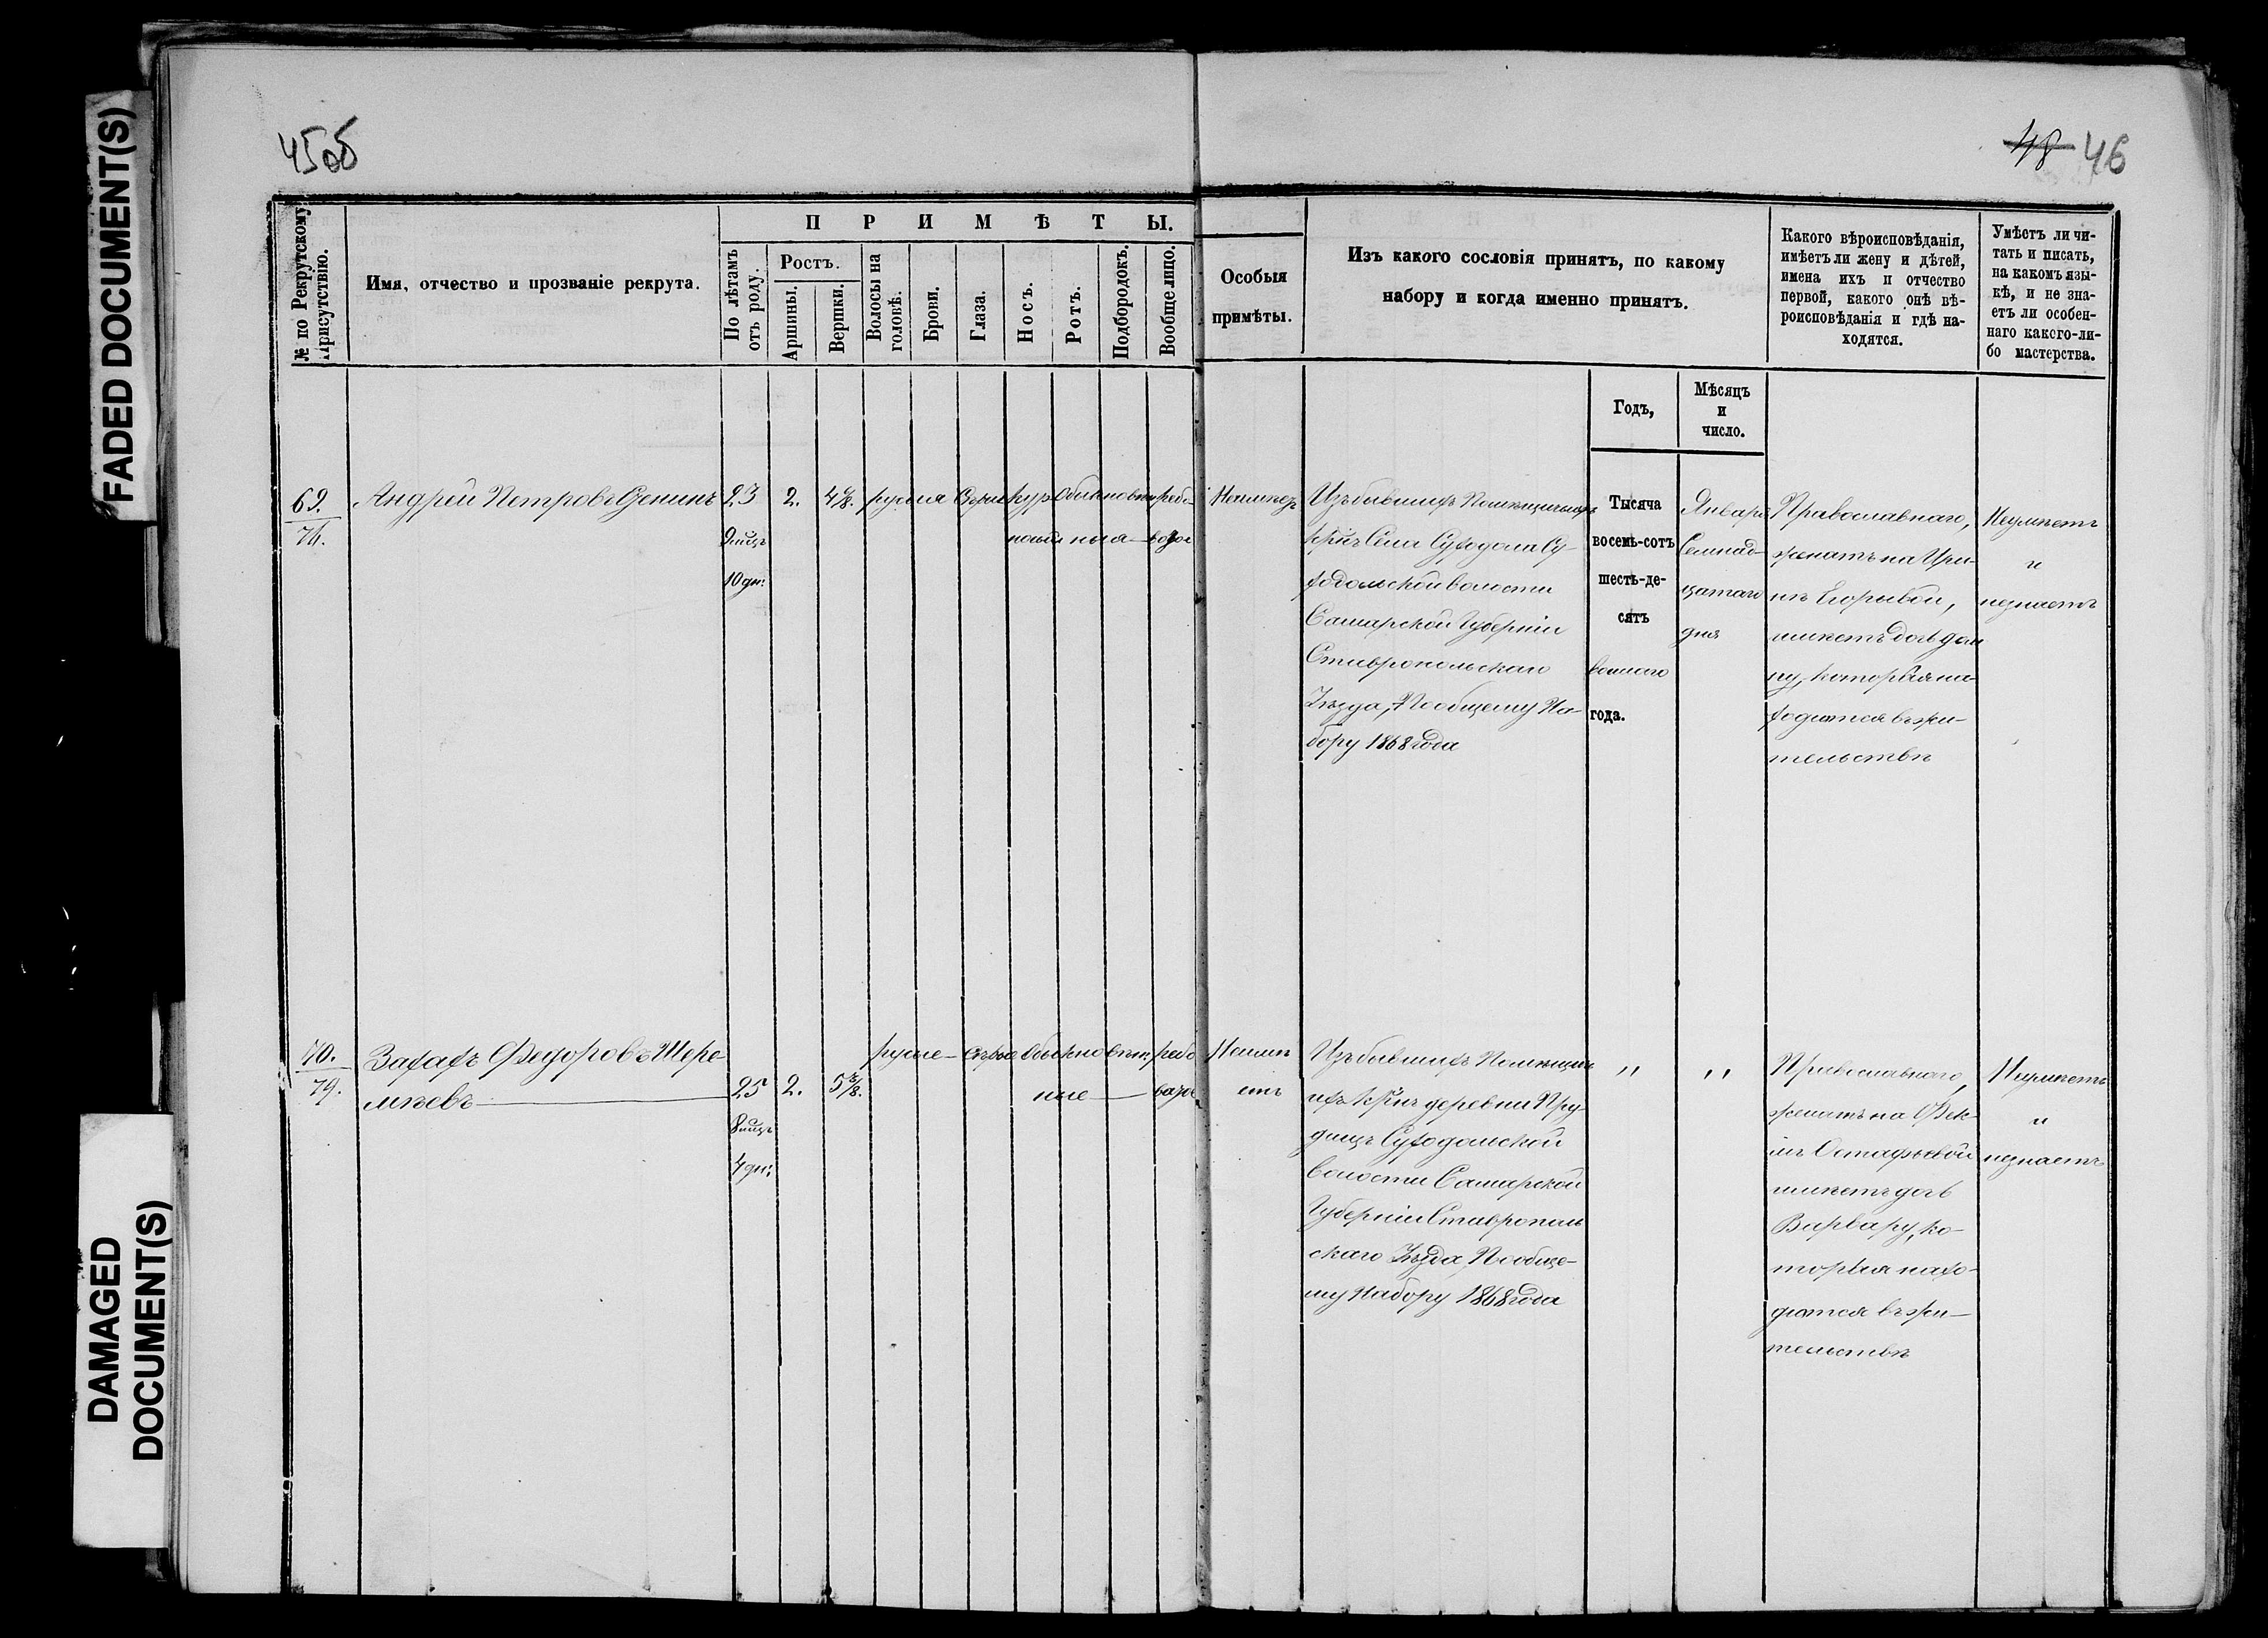 FADED DOCUMENT(S)
DAMAGED
DOCUMENT(S)
45об
48 46
№ по Рекрутскому
Присутствію.
Имя, отчество и прозваніе рекрута.
ПРИМѢТЫ.
По лѣтамъ
отъ роду.
Ростъ.
Аршины.
Вершки.
Волосы на
головѣ.
Брови.
Глаза.
Носъ.
Ротъ.
Подбородокъ.
Вообще лицо.
Особыя
примѣты.
Изъ какого сословія принятъ, по какому
набору и когда именно принятъ.
Какого вѣроисповѣданія,
имѣетъ ли жену и дѣтей,
имена ихъ и отчество
первой, какого онѣ вѣ-
роисповѣданія и гдѣ на-
ходятся.
Умѣетъ ли чи-
тать и писать,
на какомъ язы-
кѣ, и не зна-
етъ ли особен-
наго какого-ли-
бо мастерства.
Годъ,
Мѣсяцъ
и
число.
69.
Андрей Петровъ
23
9 мцъ
10 дн:
2.
русыя
Сѣрые
Обыкновен
ныя
рябо-
Неимѣетъ
Изъ бывшихъ Помѣщичьихъ
крнъ Села Суходола Су-
ходольской волости
Самарской Губерніи
Ставропольскаго
Уѣзда, Пообщему На-
бору 1868 года
Тысяча
восемь-сотъ
шесть-де-
сятъ
восмаго
года.
Января
Семнад-
цатаго
дня
Православнаго,
женатъ на Ири-
нѣ Егоровой,
имѣетъ дочь Дом
ну, которыя на-
ходятся въ жи-
тельствѣ
Неумѣетъ
и
незнаетъ
70.
79.
Захаръ Федоровъ Шере-
мѣевъ
25
8 мцъ
4 дн:
2.
5 3/8.
русые
сѣрые
Обыкновен
ные
рябо
Неимѣ
етъ
Изъ бывшихъ Помѣщичь
ихъ крнъ деревни Пру-
дищъ Суходольской
волости Самарской
Губерніи Ставрополь
скаго Уѣзда, Пообще-
му Набору 1868 года
" "
Православнаго,
женатъ на Фек-
лѣ Остафьевой
имѣетъ дочь
Варвару, ко-
торыя нахо-
дятся въ жи-
тельствѣ
Неумѣетъ
и
незнаетъ